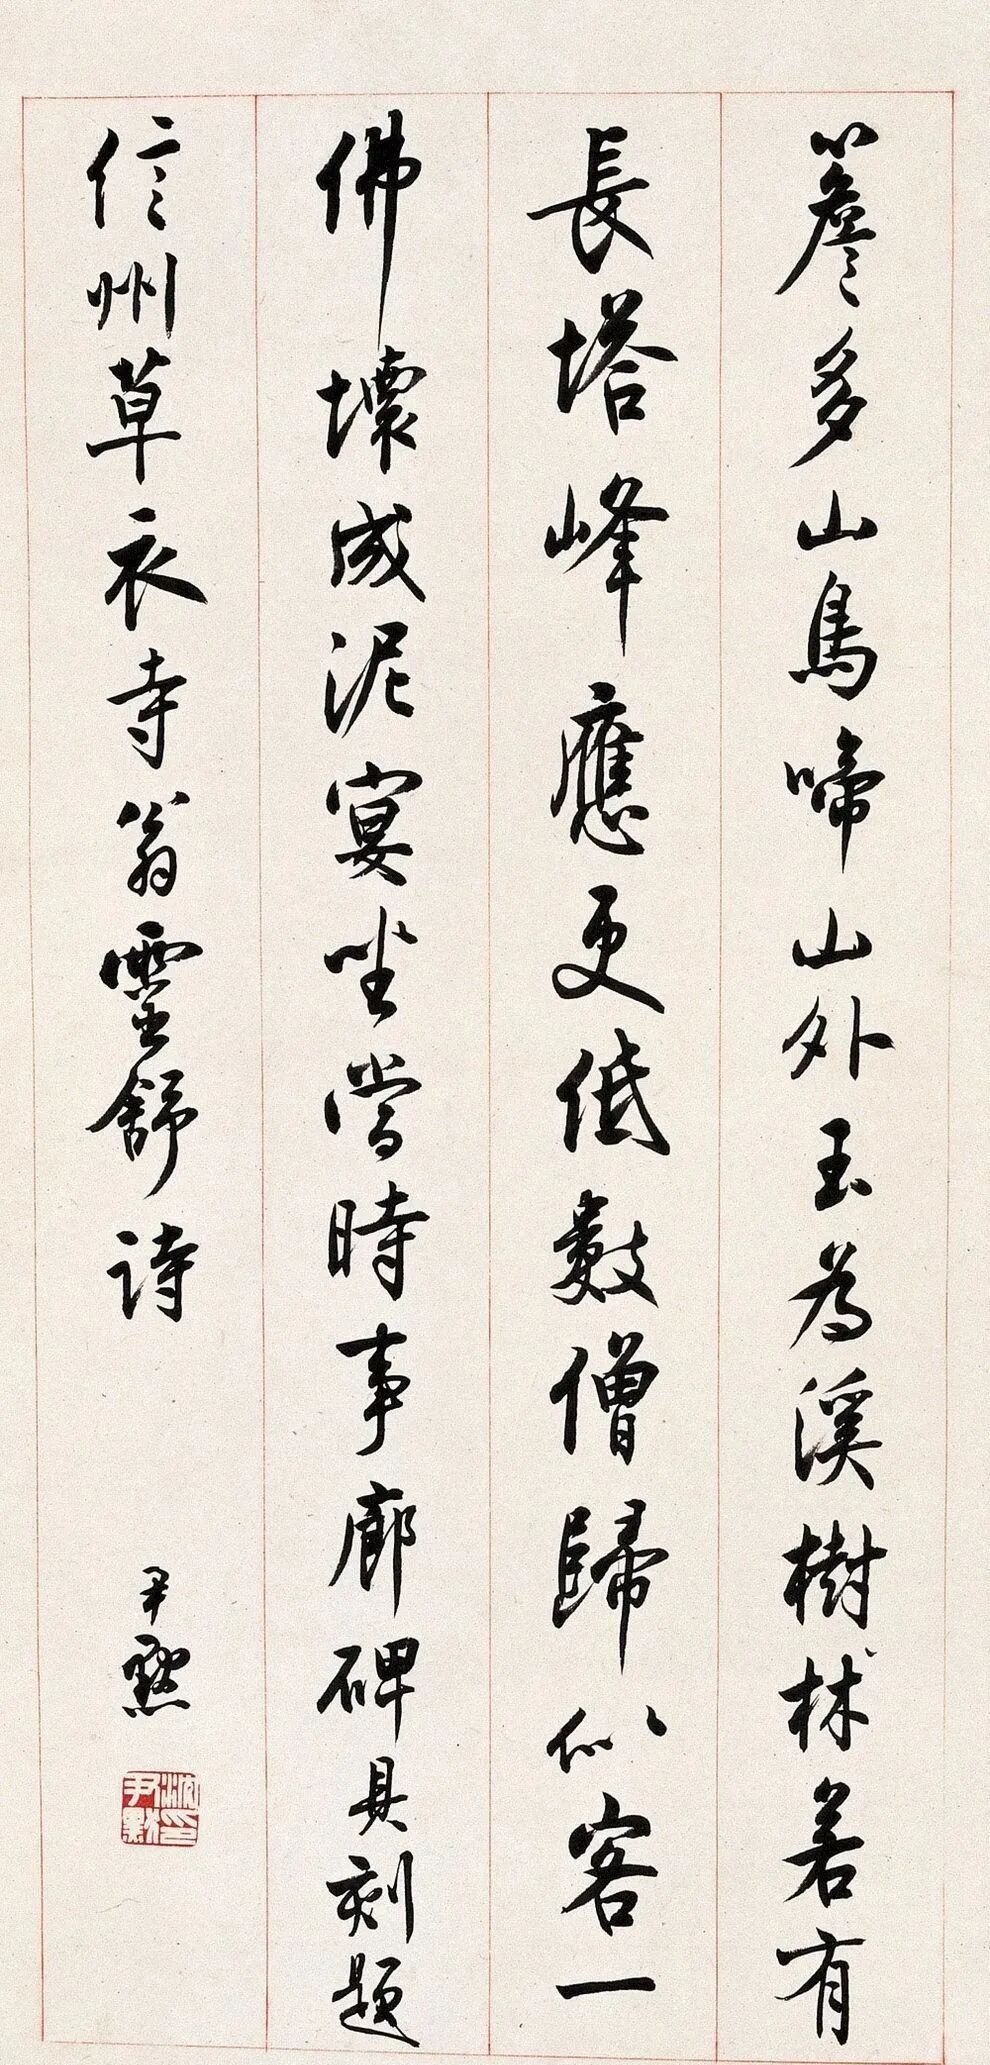 簷多山鳥啼山外玉為溪樹林若有
長塔峰應更低數僧歸似客一
佛壞成泥宴坐當時事廊碑具刻題
信州草衣寺翁靈舒詩
尹默
沈尹默印